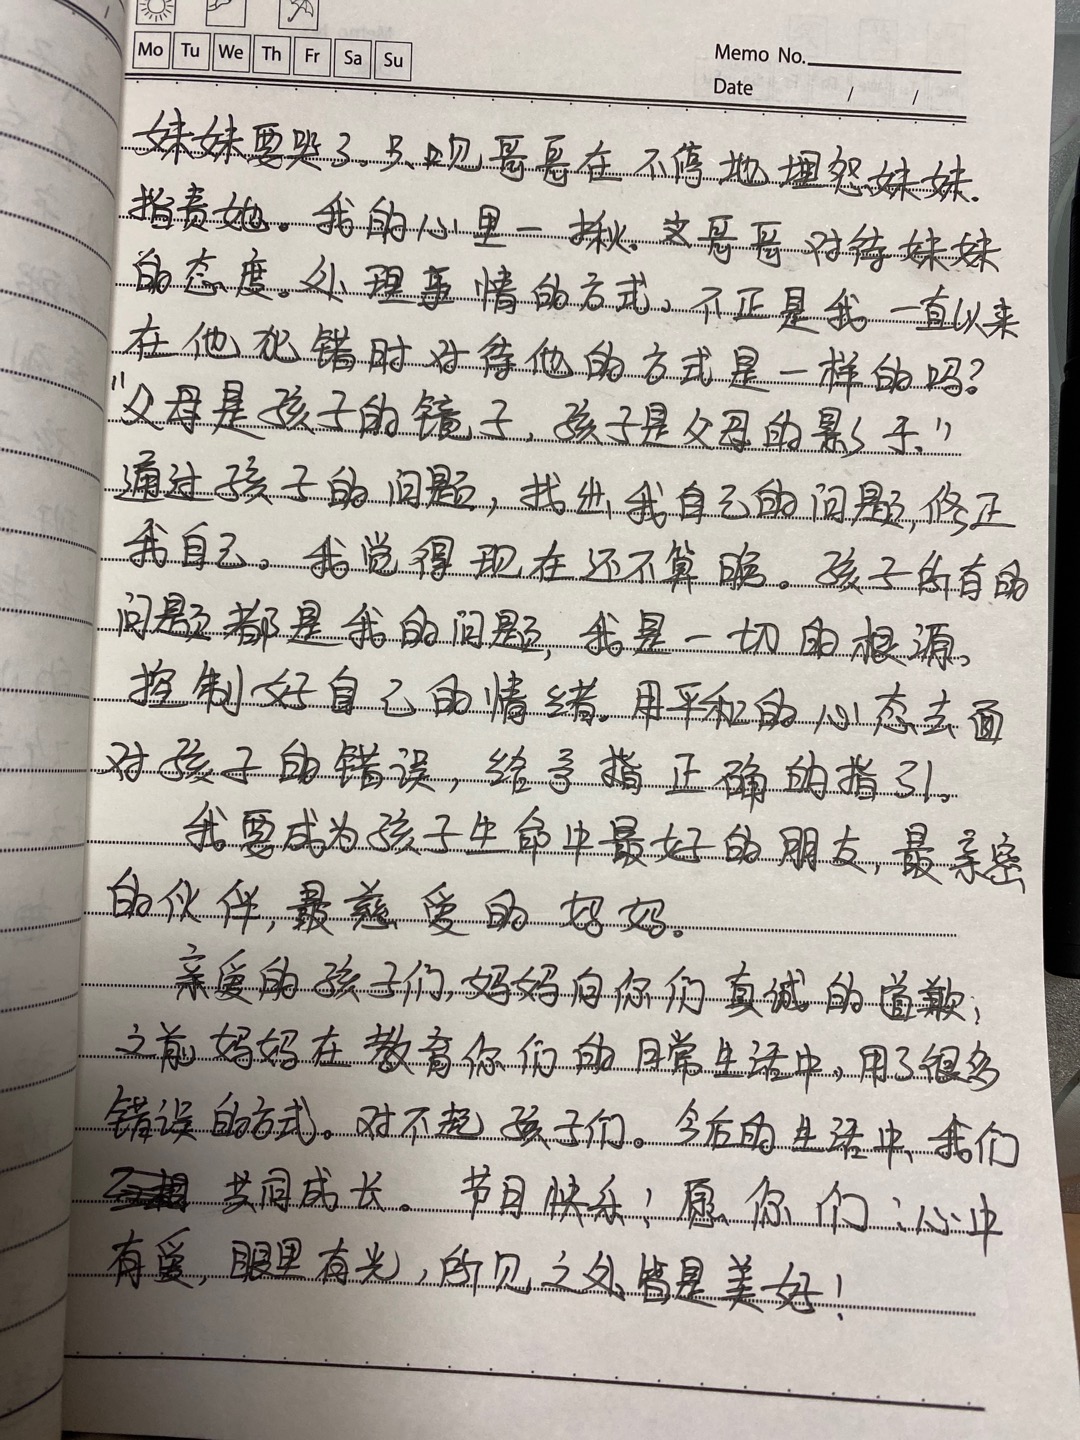 Mo Tu We Th Fr Sa Su
Memo No.
Date / /
妹妹要哭了。只见哥哥在不停地埋怨妹妹.
指责她。我的心里一揪。这哥哥对待妹妹
的态度。处理事情的方式。不正是我一直以来
在他犯错时对待他的方式是一样的吗?
"父母是孩子的镜子,孩子是父母的影子."
通过孩子的问题,找出我自己的问题,修正
我自己。我觉得现在还不算晚。孩子所有的
问题都是我的问题,我是一切的根源。
控制好自己的情绪。用平和的心态去面
对孩子的错误,给予指正确的指引。
我要成为孩子生命中最好的朋友,最亲密
的伙伴,最慈爱的妈妈。
亲爱的孩子们,妈妈向你们真诚的道歉;
之前妈妈在教育你们的日常生活中,用了很多
错误的方式。对不起孩子们。今后的生活中、我们
共同成长。节日快乐!愿你们:心中
有爱,眼里有光,所见之处皆是美好!